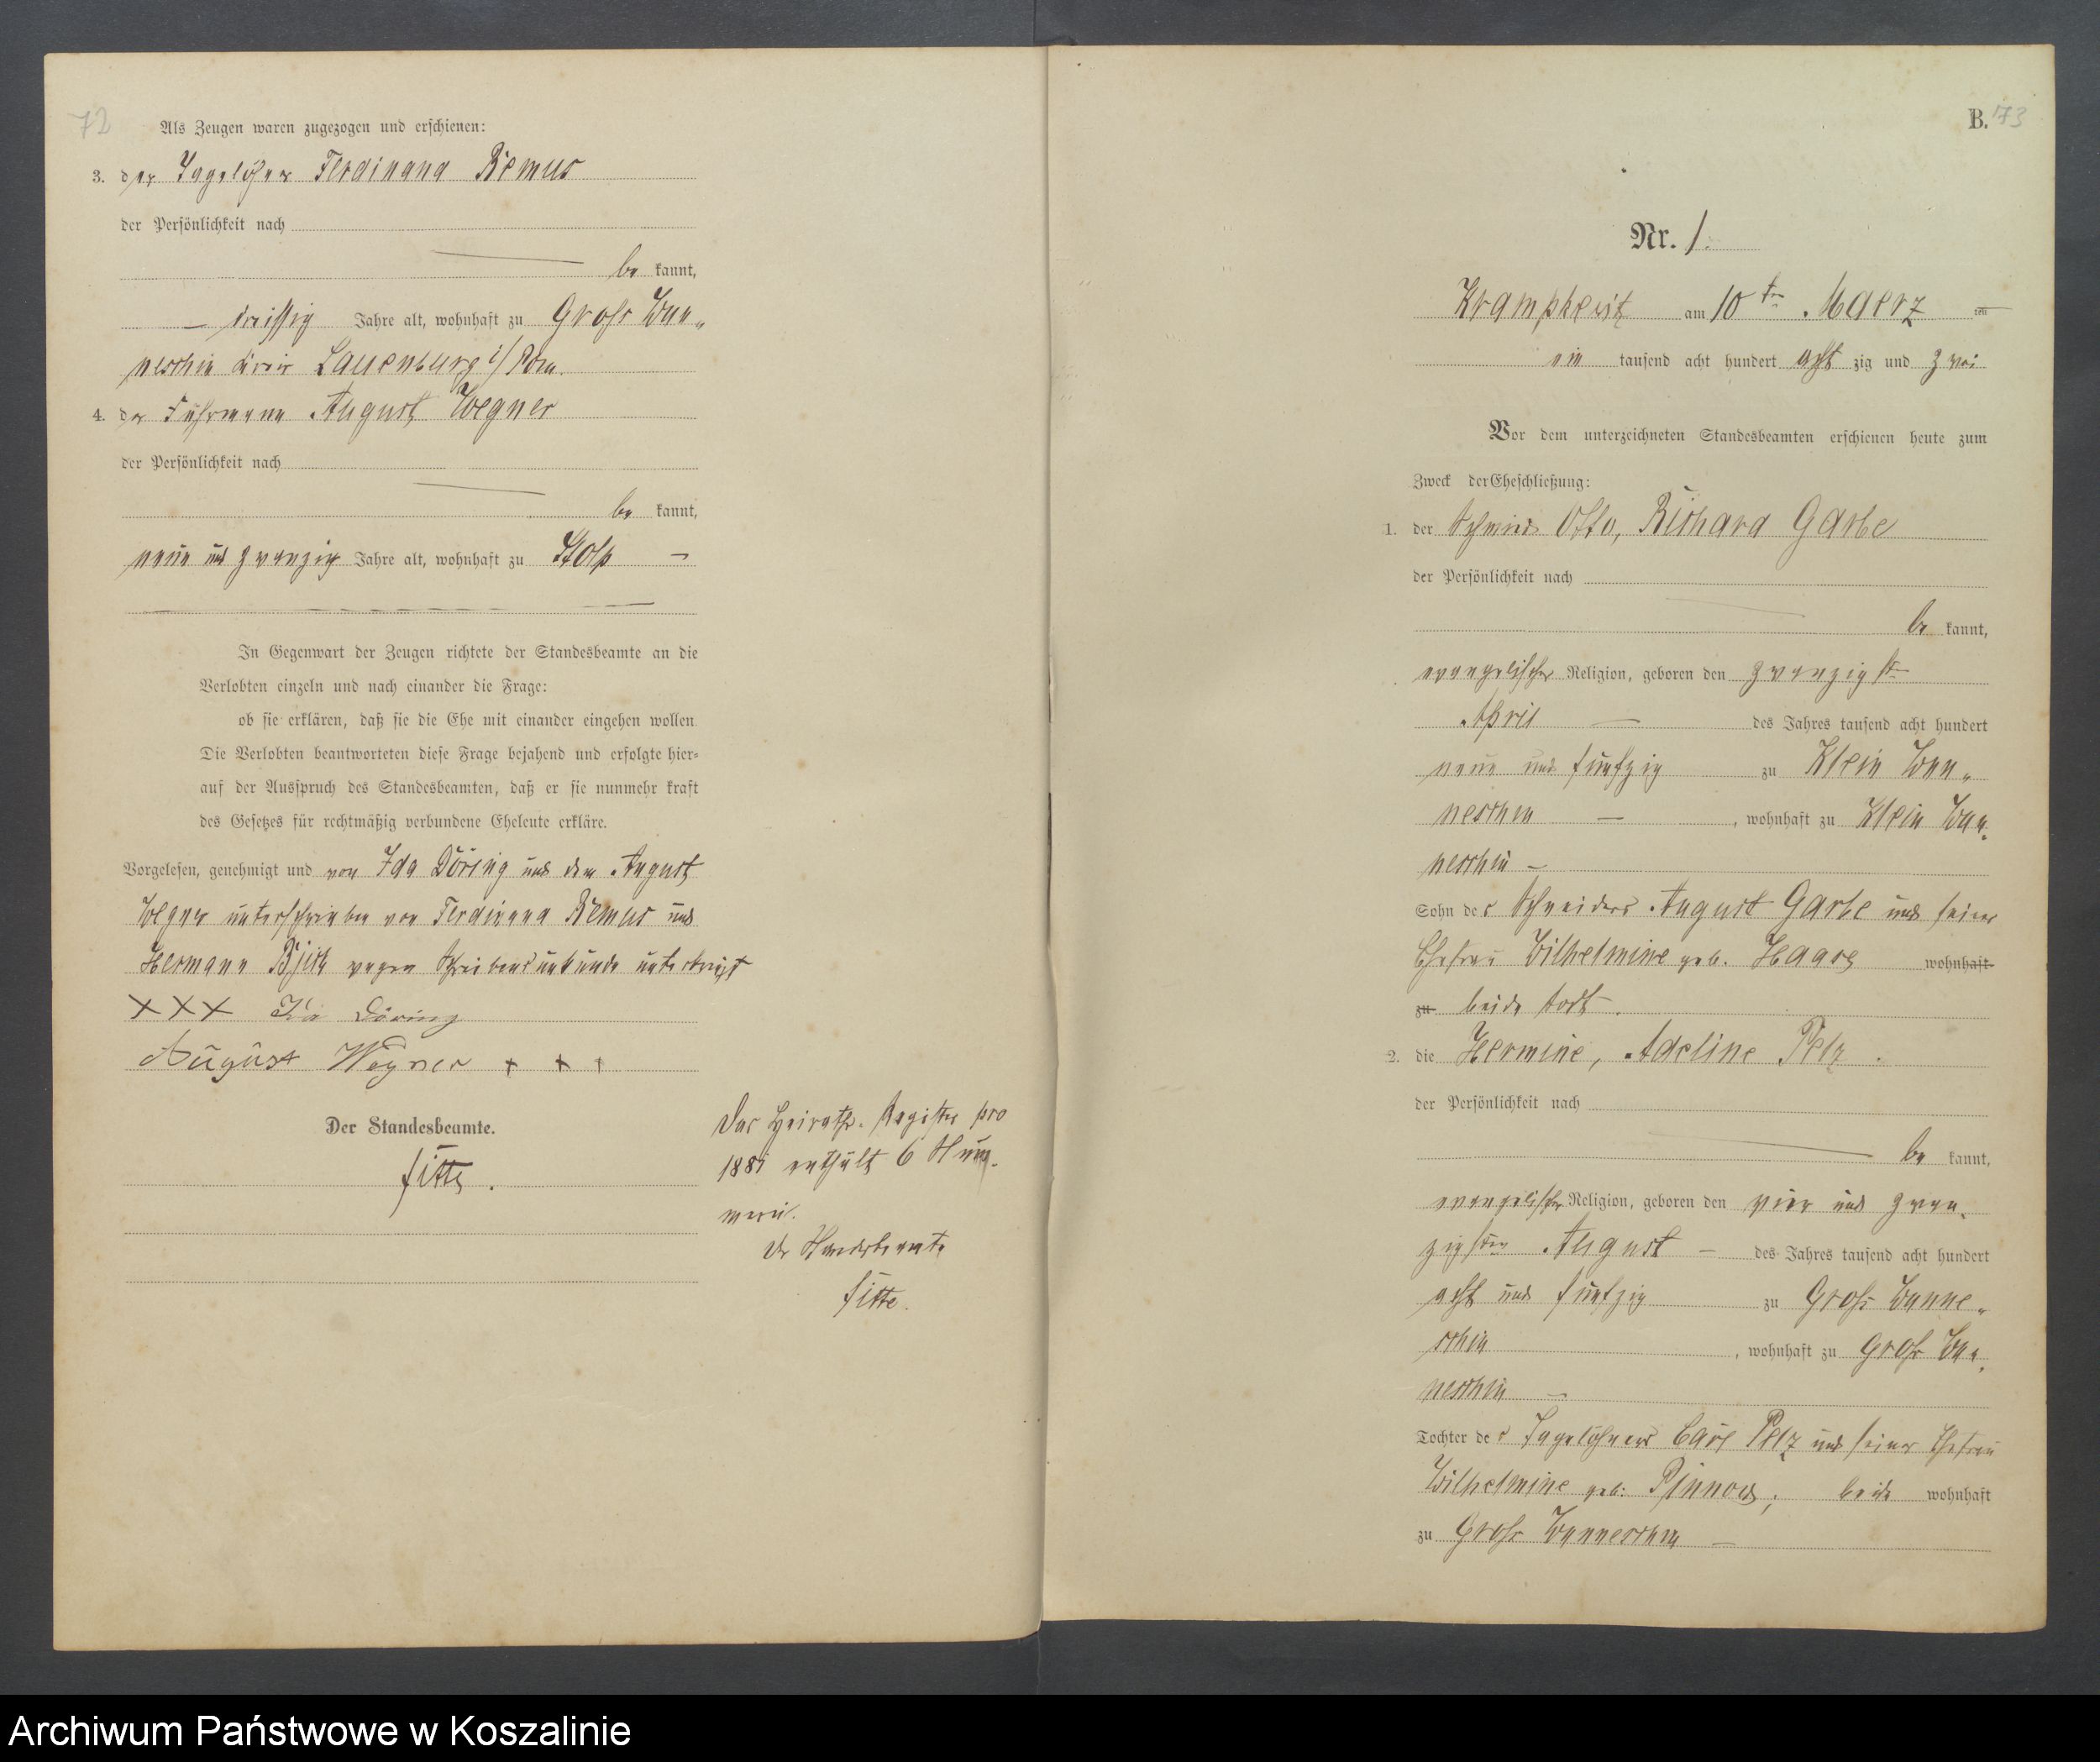 72
Als Zeugen waren zugezogen und erschienen:
3. der Tagelöhner Ferdinand Remus
der Persönlichkeit nach
be kannt,
dreissig Jahre alt, wohnhaft zu Gross Wun„
neschin Kreis Lauenburg i/Pom.
4. der Fuhrmann August Wegner
der Persönlichkeit nach
be kannt,
neun und zwanzig Jahre alt, wohnhaft zu Stolp —
In Gegenwart der Zeugen richtete der Standesbeamte an die
Verlobten einzeln und nach einander die Frage:
ob sie erklären, daß sie die Ehe mit einander eingehen wollen.
Die Verlobten beantworteten diese Frage bejahend und erfolgte hier-
auf der Ausspruch des Standesbeamten, daß er sie nunmehr kraft
des Gesetzes für rechtmäßig verbundene Eheleute erkläre.
Vorgelesen, genehmigt und von Ida Döring und dem August
Wegner unterschrieben von Ferdinand Remus und
Hermann wegen Schreibensunkunde unterkreuzt
XXX Ida Döring
August Wegner + + +
Der Standesbeamte.
Das Heiraths-Register pro
1881 enthält 6 Num-
mern.
Der Standesbeamte
B. 73
Nr. 1.
Krampkewitz am 10ten Maerz ten
ein tausend acht hundert acht zig und zwei
Vor dem unterzeichneten Standesbeamten erschienen heute zum
Zweck der Eheschließung:
1. der Schmied Otto, Richard Garbe
der Persönlichkeit nach
be kannt,
evangelischer Religion, geboren den zwanzigsten
April — des Jahres tausend acht hundert
neun und fünfzig zu Klein Wun„
neschin — , wohnhaft zu Klein Wun„
neschin —
Sohn des Schneiders August Garbe und seiner
Ehefrau Wilhelmine geb. Haase wohnhaft
zu beide todt.
2. die Hermine, Adeline Pelz.
der Persönlichkeit nach
be kannt,
evangelischer Religion, geboren den vier und zwan„
zigsten August — des Jahres tausend acht hundert
acht und fünfzig zu Gross Wunne„
schin , wohnhaft zu Gross Wun„
neschin —
Tochter des Tagelöhners Carl Pelz und seiner Ehefrau
Wilhelmine geb: Pinnow, beide wohnhaft
zu Gross Wunneschin —
Archiwum Państwowe w Koszalinie